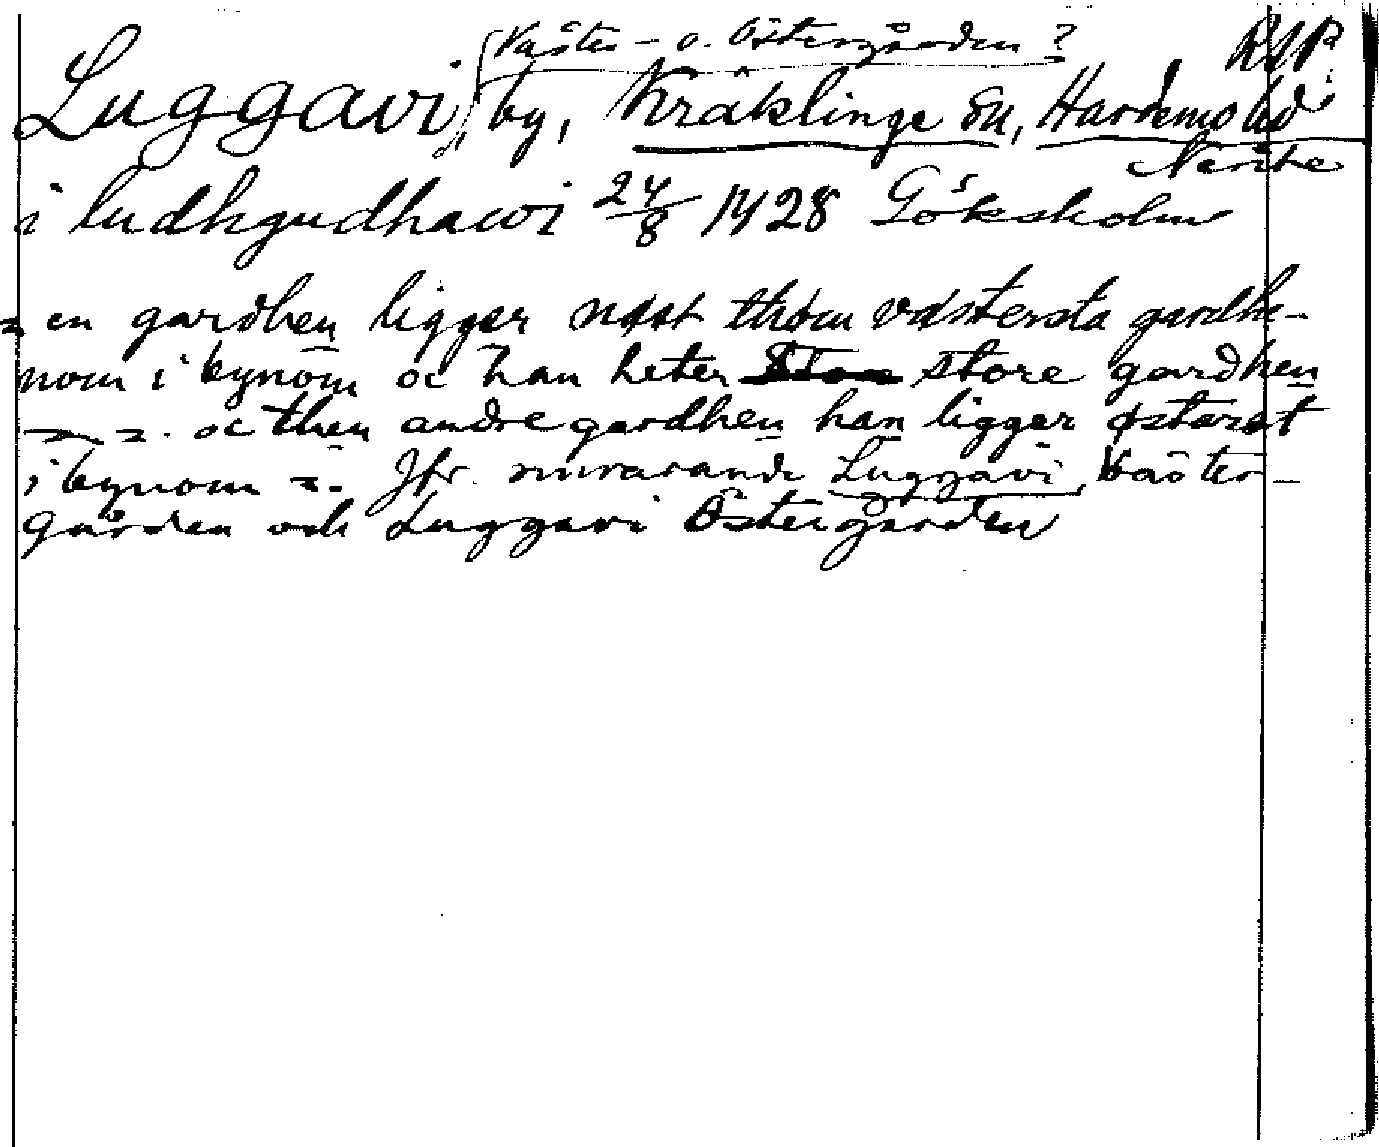 Väster- o. Östergården?
RAP
Luggavi, by, Kräklinge sn, Hardemo hd
Nerike
i ludhgudhawi 24/8 1428 Göksholm
= en gardhen ligger næst thøm væstersta gardhe-
nom i bynom oc han heter store gardhen
oc then andre gardhen han ligger østarst
i bynom =. Jfr. nuvarande Luggavi Väster-
gården och Luggavi Östergården